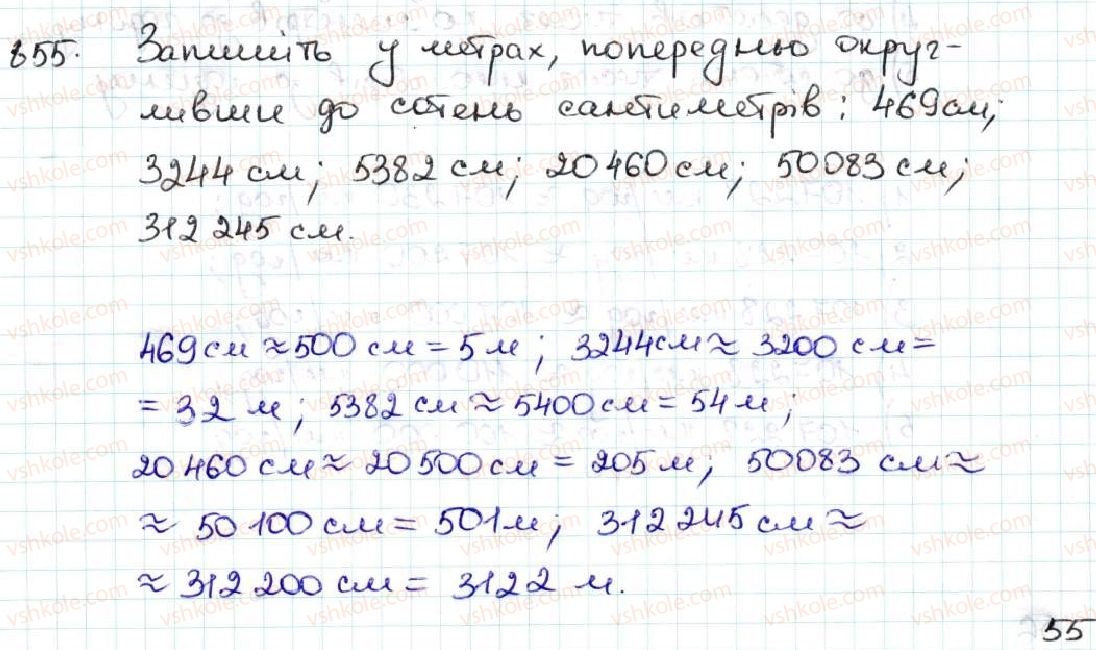 855. Запишіть у метрах, попередньо округ-
ливши до сотень сантиметрів: 469 см;
3244 см; 5382 см; 20 460 см; 50083 см;
312 245 см.
469 см ≈ 500 см = 5 м; 3244 см ≈ 3200 см =
= 32 м; 5382 см ≈ 5400 см = 54 м;
20 460 см ≈ 20 500 см = 205 м; 50083 см ≈
≈ 50 100 см = 501 м; 312 245 см ≈
≈ 312 200 см = 3122 м.
55
vshkole.com